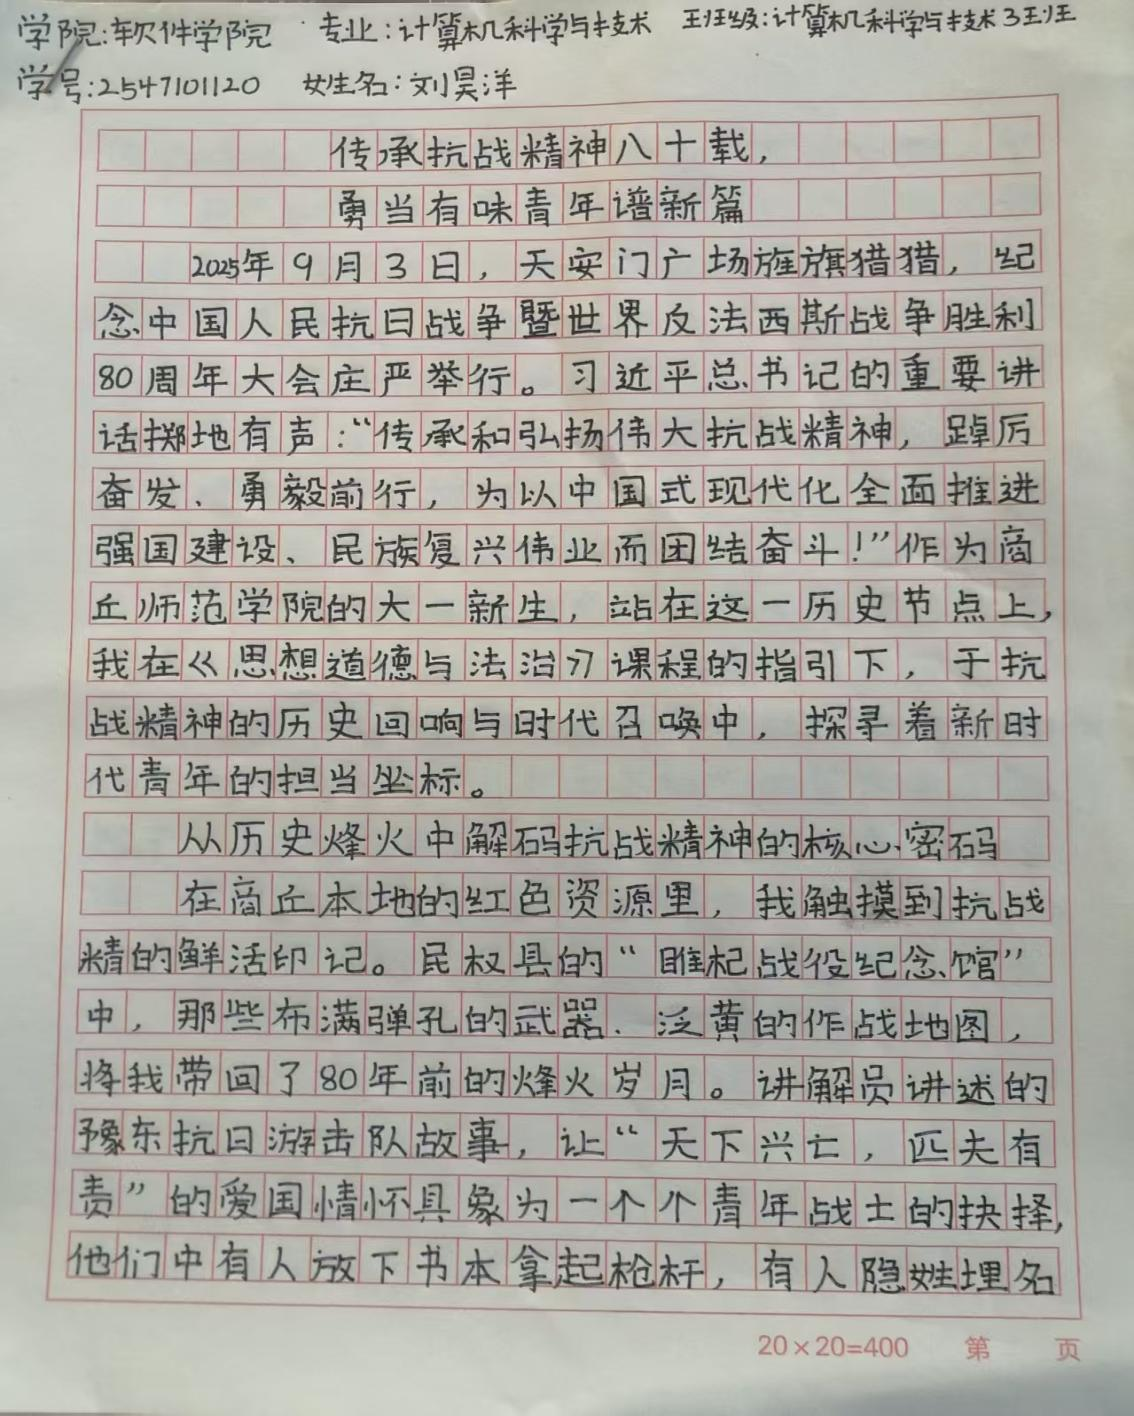 学院:软件学院 专业:计算机科学与技术 班级:计算机科学与技术3班
学号:2547101120 姓名:刘昊洋
传承抗战精神八十载，
勇当有味青年谱新篇
2025年9月3日，天安门广场旌旗猎猎，纪
念中国人民抗日战争暨世界反法西斯战争胜利
80周年大会庄严举行。习近平总书记的重要讲
话掷地有声：“传承和弘扬伟大抗战精神，踔厉
奋发、勇毅前行，为以中国式现代化全面推进
强国建设、民族复兴伟业而团结奋斗！”作为商
丘师范学院的大一新生，站在这一历史节点上，
我在《思想道德与法治》课程的指引下，于抗
战精神的历史回响与时代召唤中，探寻着新时
代青年的担当坐标。
从历史烽火中解码抗战精神的核心密码
在商丘本地的红色资源里，我触摸到抗战
精的鲜活印记。民权县的“睢杞战役纪念馆”
中，那些布满弹孔的武器、泛黄的作战地图，
将我带回了80年前的烽火岁月。讲解员讲述的
豫东抗日游击队故事，让“天下兴亡，匹夫有
责”的爱国情怀具象为一个个青年战士的抉择，
他们中有人放下书本拿起枪杆，有人隐姓埋名
20×20=400 第 页